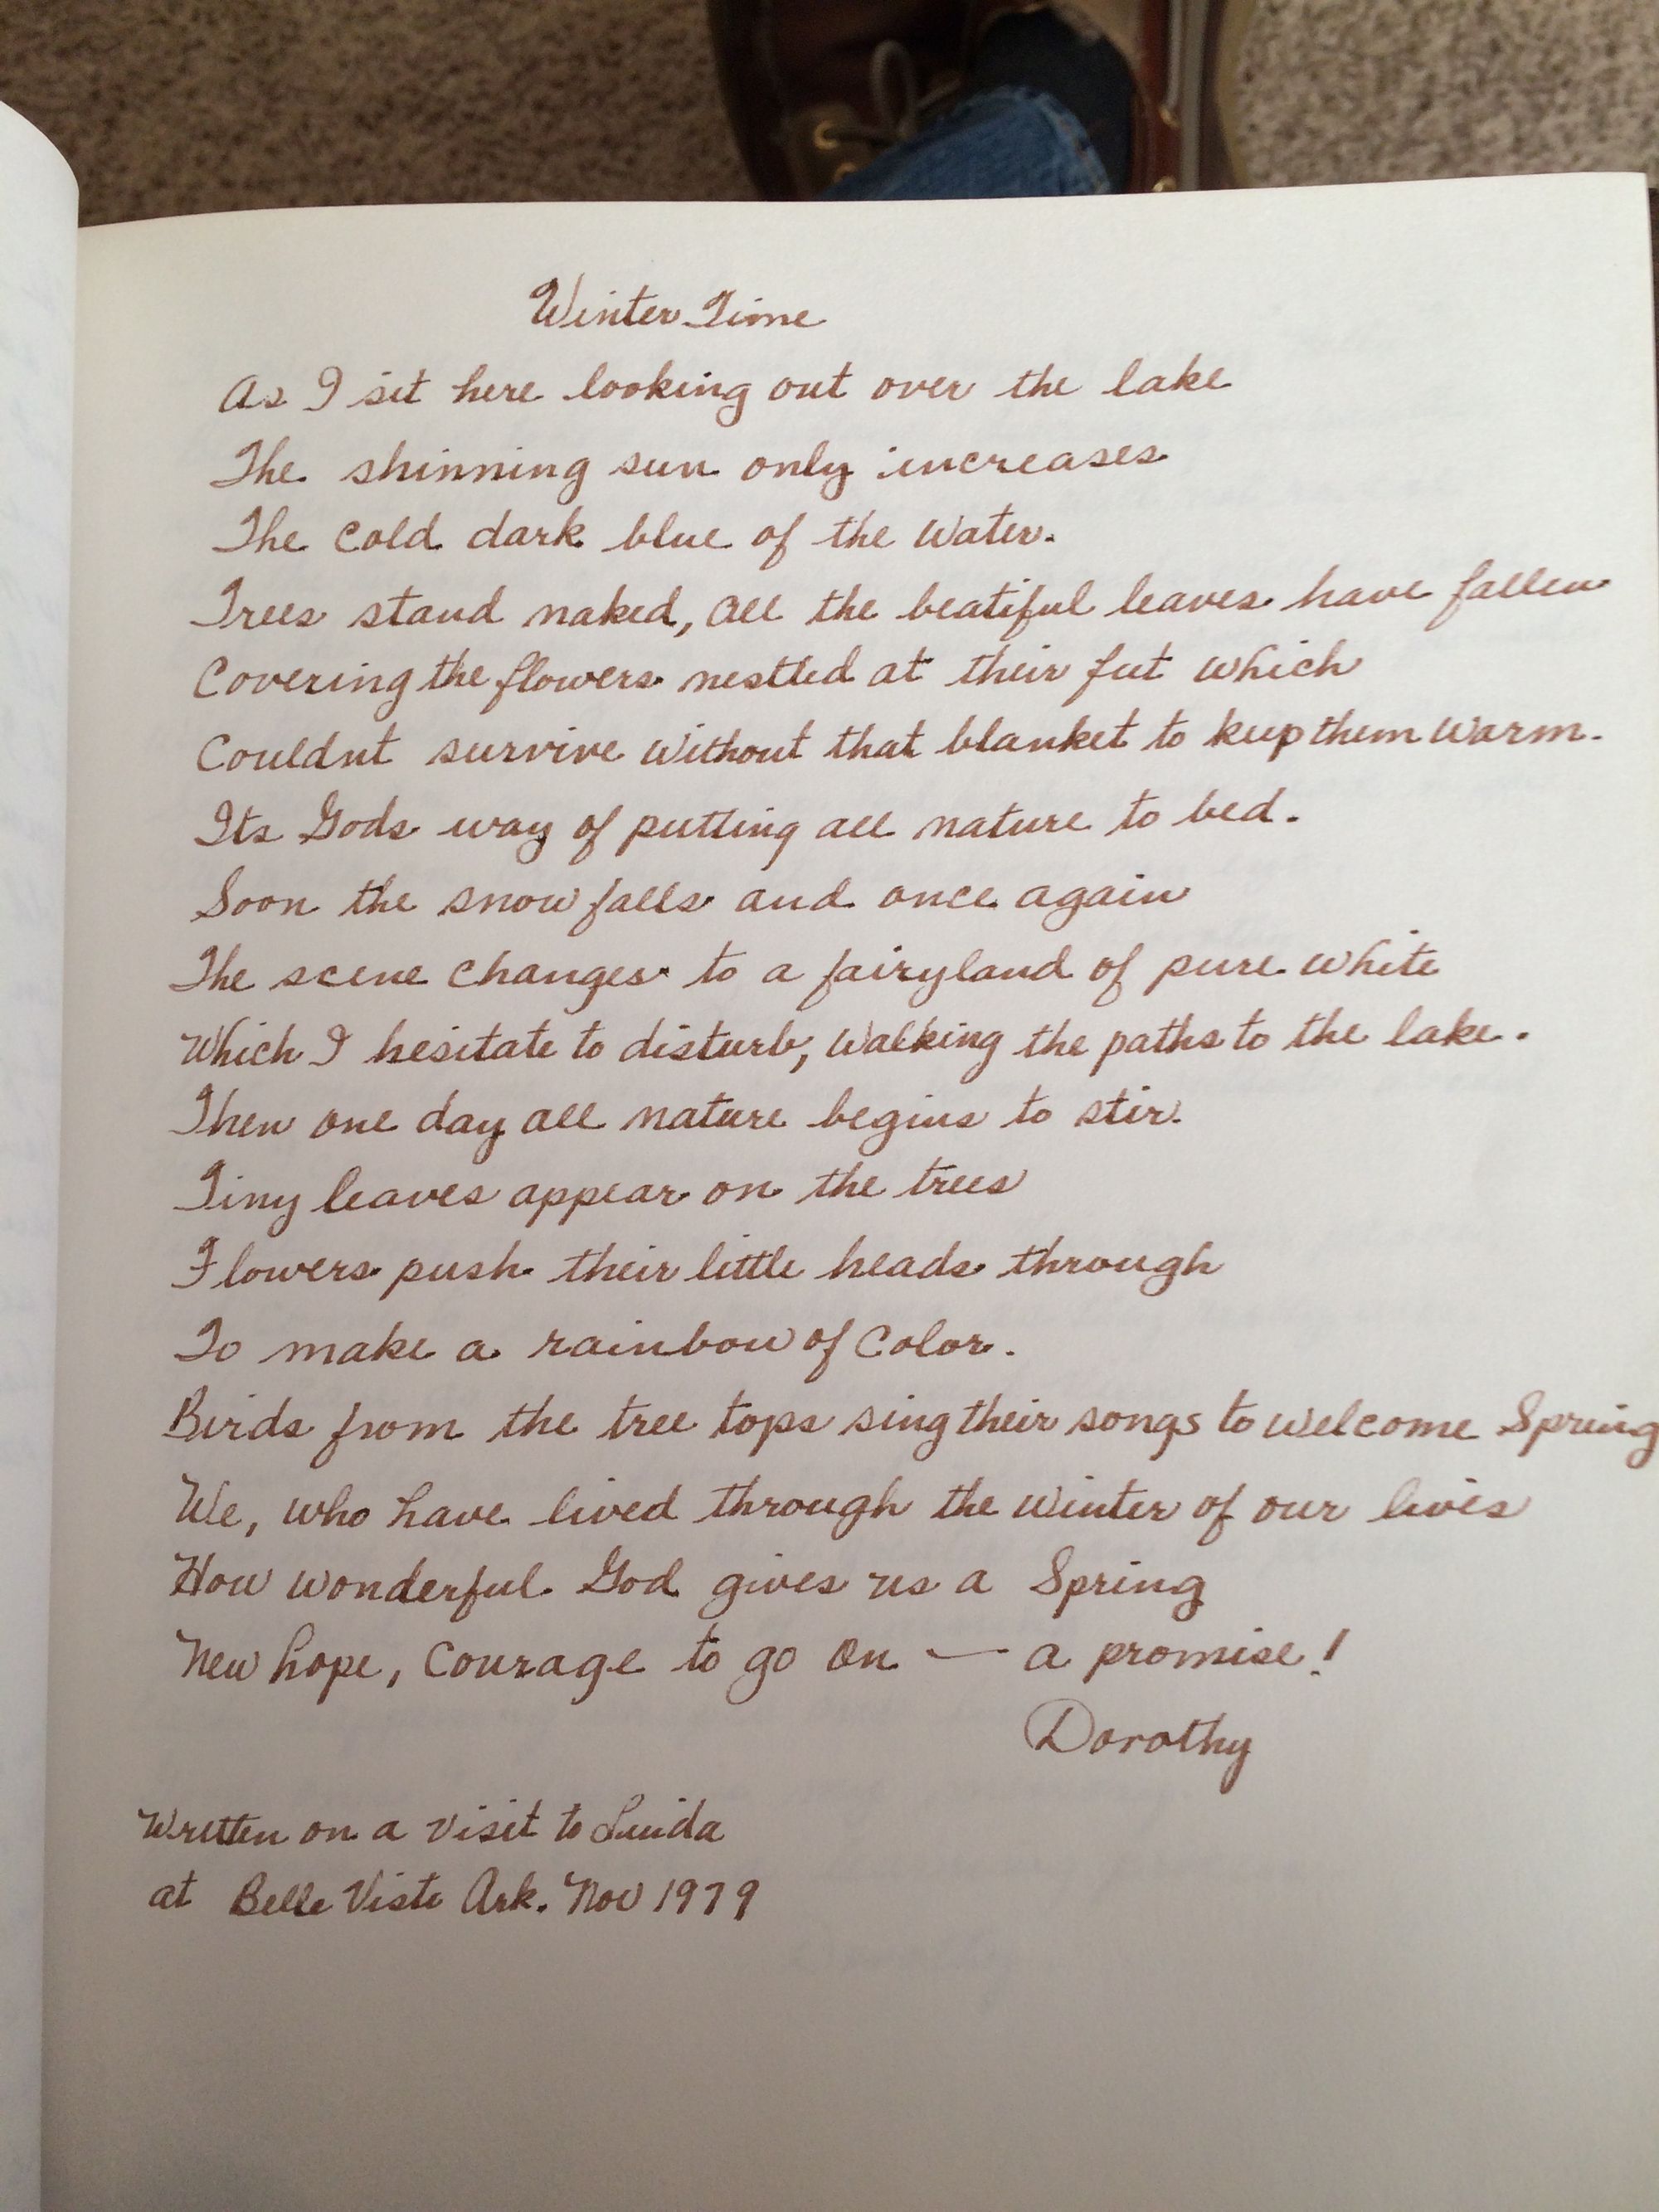 Winter Time
As I sit here looking out over the lake
The shinning sun only increases
The cold dark blue of the water.
Trees stand naked, all the beatiful leaves have fallen
Covering the flowers nestled at their feet which
Couldnt survive without that blanket to keep them warm.
Its Gods way of putting all nature to bed.
Soon the snow falls and once again
The scene changes to a fairyland of pure white
Which I hesitate to disturb, walking the paths to the lake.
Then one day all nature begins to stir.
Tiny leaves appear on the trees
Flowers push their little heads through
To make a rainbow of color.
Birds from the tree tops sing their songs to welcome Spring
We, who have lived through the winter of our lives
How wonderful God gives us a Spring
New hope, courage to go on — a promise!
Dorothy
Written on a visit to Linda
at Belle Vista Ark. Nov 1979